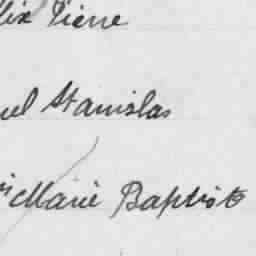 lix Pierre
uel Stanislas
Marie Baptiste